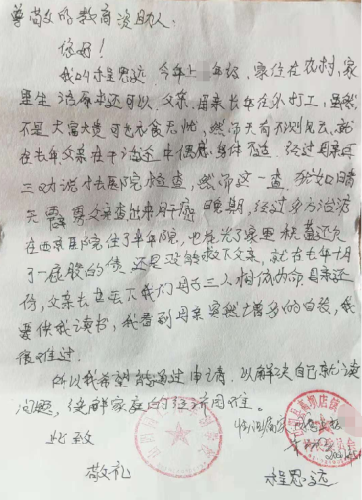 尊敬的教育资助人:
您好!
我叫程思远 今年上 年级,家住在农村,家
里生活原来还可以,父亲,母亲长年在外打工,虽然
不是大富大贵可也衣食无忧,然而天有不测风云,就
在去年父亲在干活途中偶感身体不适.经过母亲再
三劝说去医院检查,然而这一查.犹如晴
天霹雳父亲查出来肝癌晚期,经过多方治疗
在西京医院住了半年院,也花光了家里积蓄还欠
了一屁股的债 还是没能救下父亲,就在去年十月
份,父亲去世丢下我们母子三人相依为命.母亲还
要供我读书,我看到母亲突然增多的白发,我
很难过.
所以我希望能通过申请.以解决自己就读
问题,缓解家庭的经济困难。
此致
敬礼
情况属实
程思远